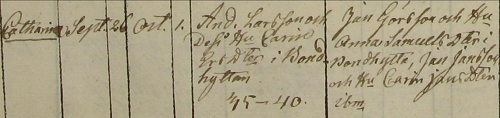 Catharina Sept. 26 Oct. 1.
And. Larsson och
Dess Hu Carin
Ers Dter i Bond-
hyttan.
45-40.
Jan Görsson och Hu
Anna Samuels Dter i
Bondhytta, Jan Jansson
och Hu Carin Jans Dter
ibm